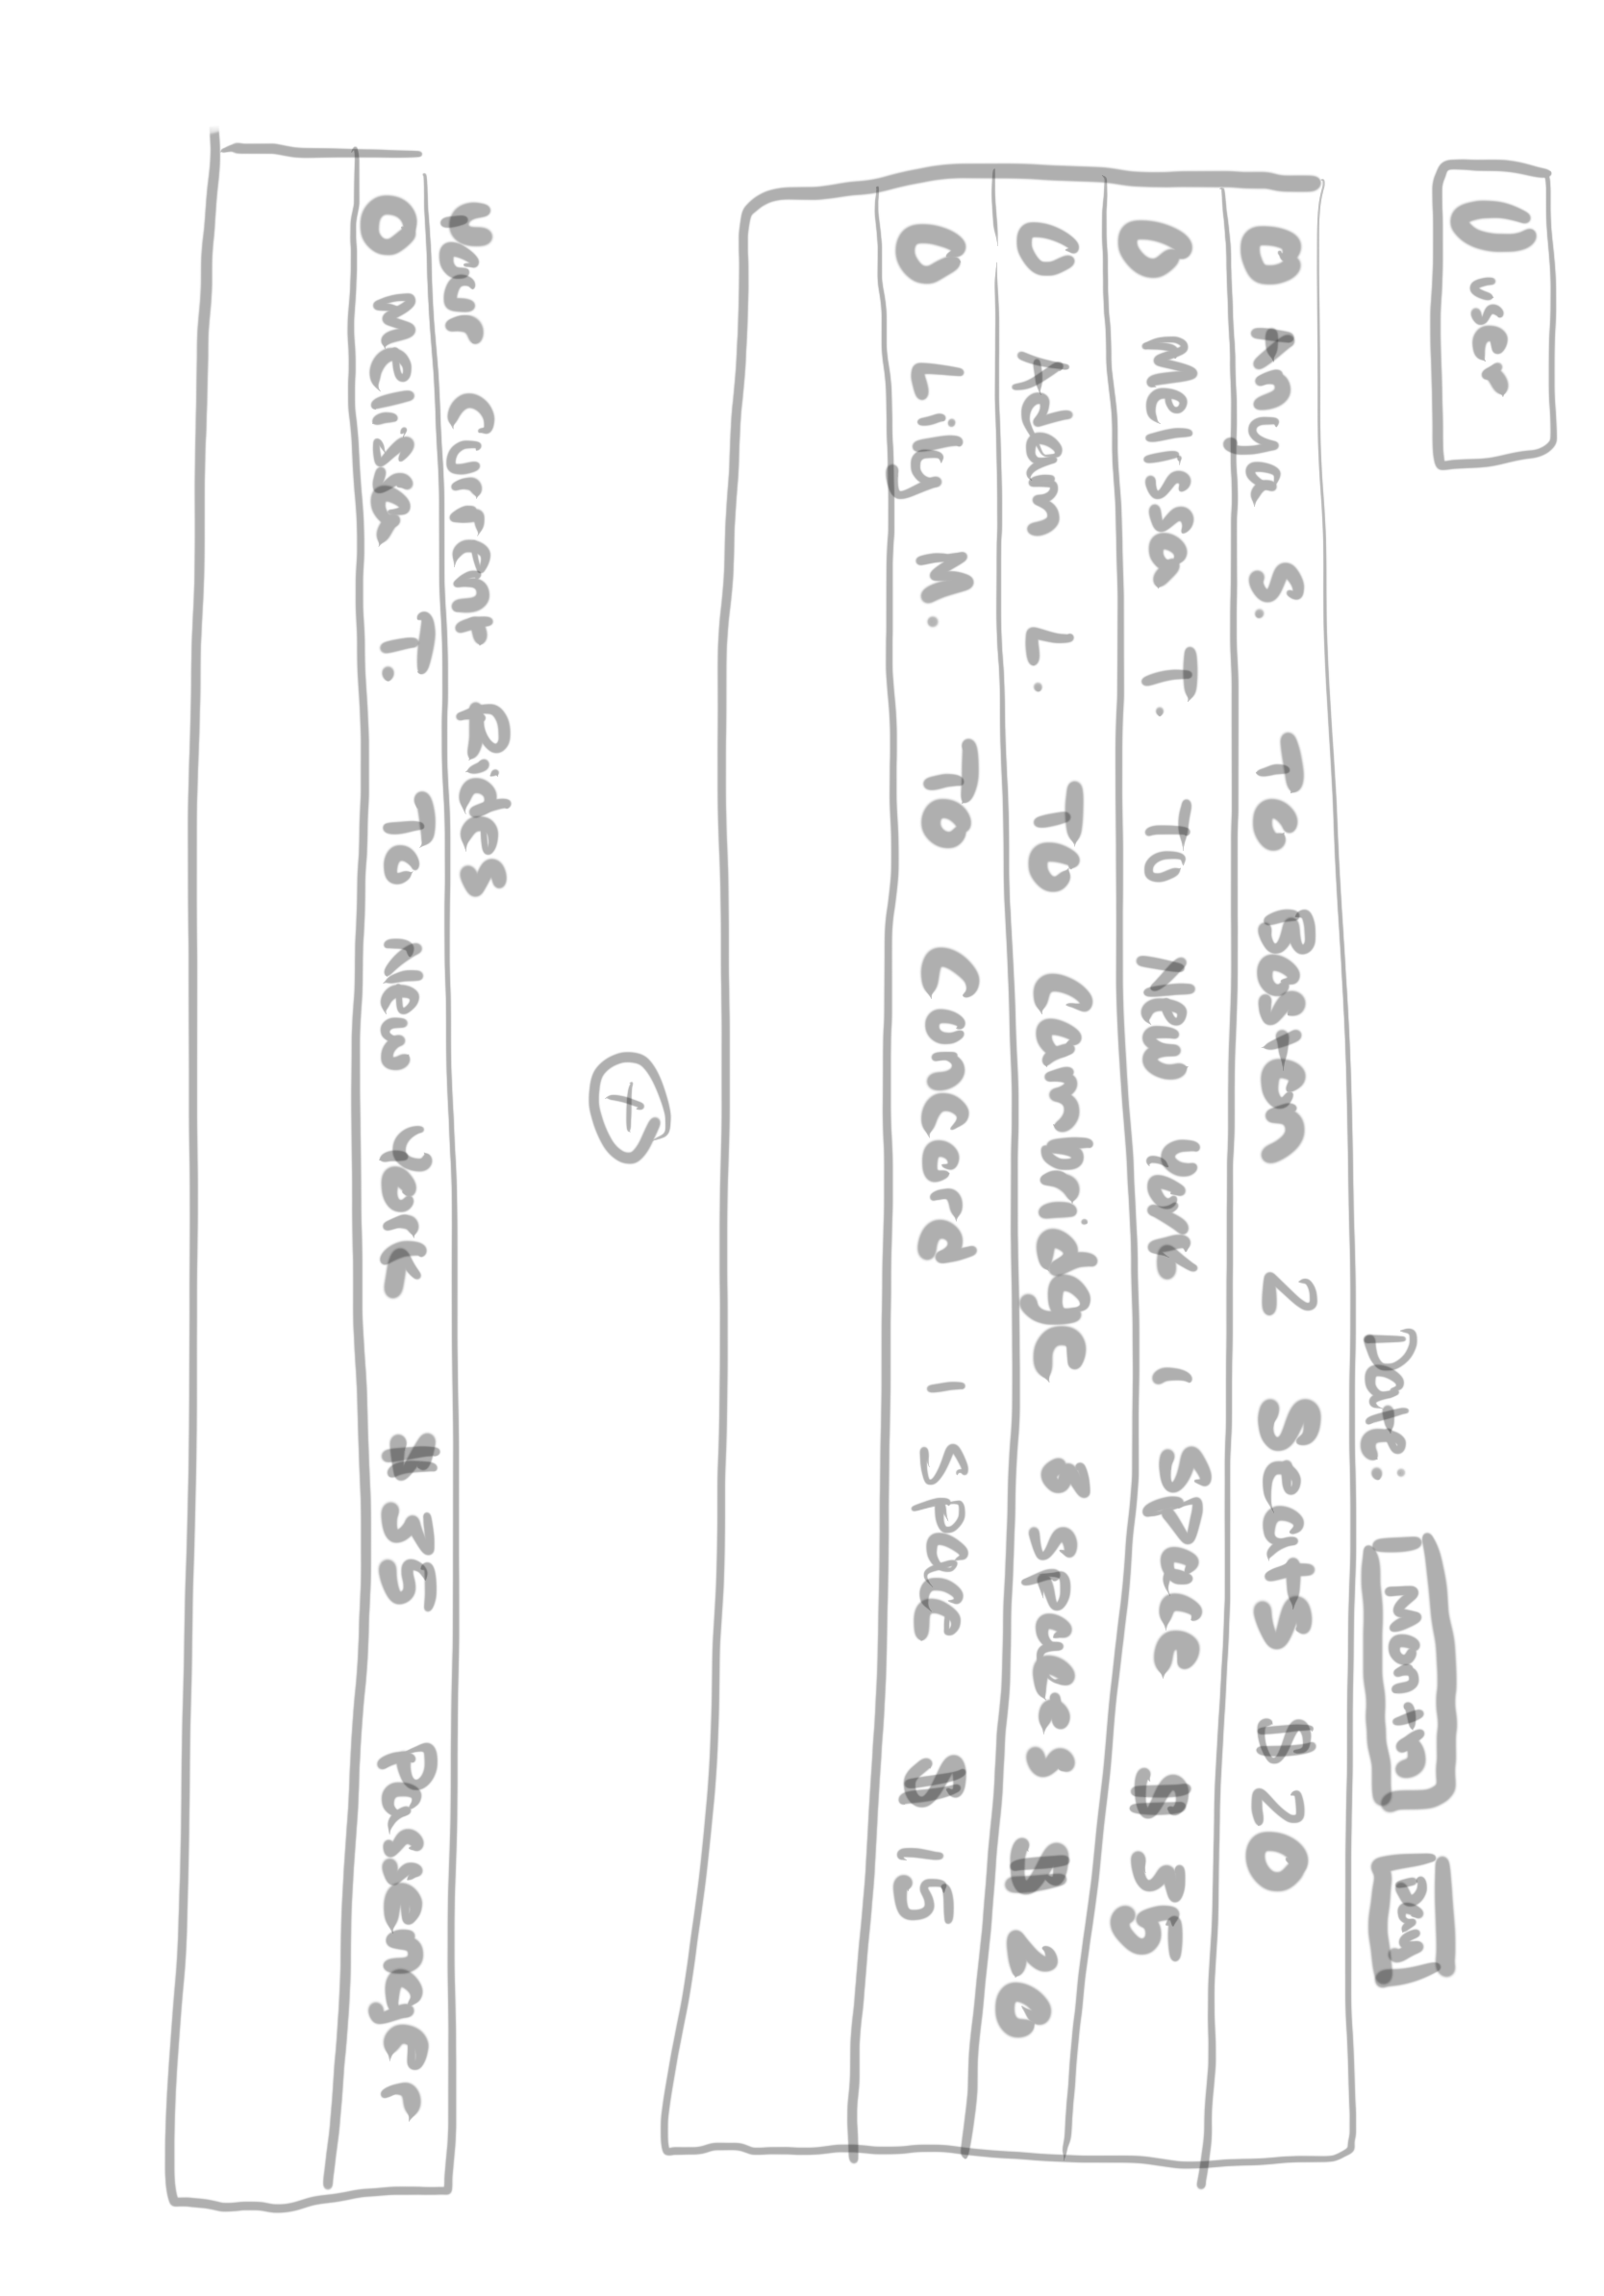 user
Date: Month Day
Amya S. To Boston 2 Seats $20
Melissa T. To New York 1 Space $55
Adam L. To Cambridge 8 spaces $20
Lily M. To Concord 1 Space $15
+
Your Current Rides
Melissa T. To New York $55 Passenger